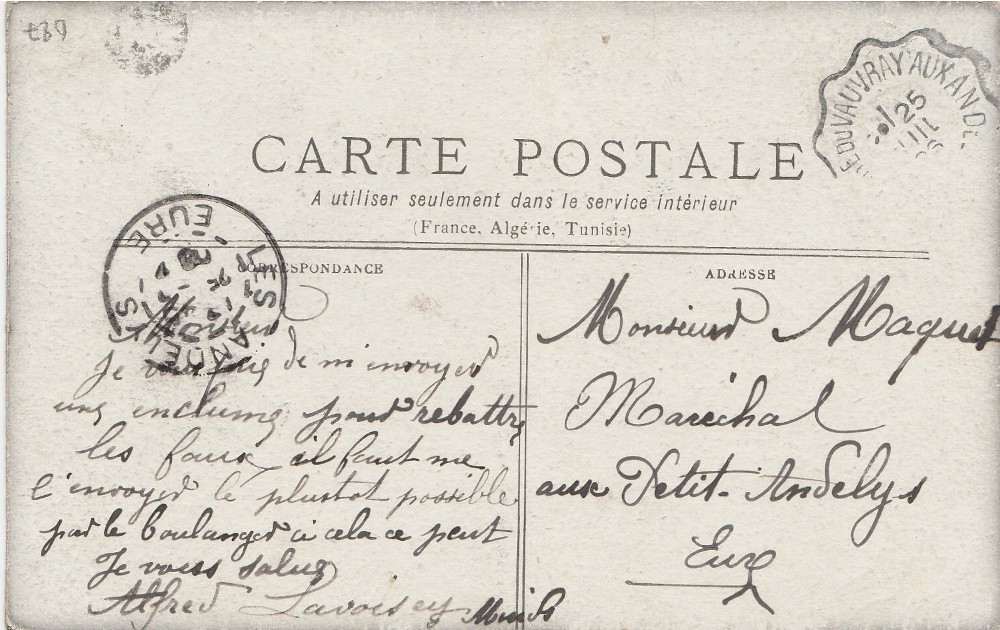 687
ST PIERRE DU VAUVRAY AUX ANDELYS
25
CARTE POSTALE
A utiliser seulement dans le service intérieur
(France, Algérie, Tunisie)
LES ANDELYS
EURE
CORRESPONDANCE
Monsieur
Je vous prie de m'envoyer
une enclume pour rebattre
les faux, il faut me
l'envoyer le plustot possible
par le boulanger ci cela ce peut
Je vous salue
Alfred Lavoisey Muids
ADRESSE
Monsieur Maquet
Maréchal
aux Petit-Andelys
Eure